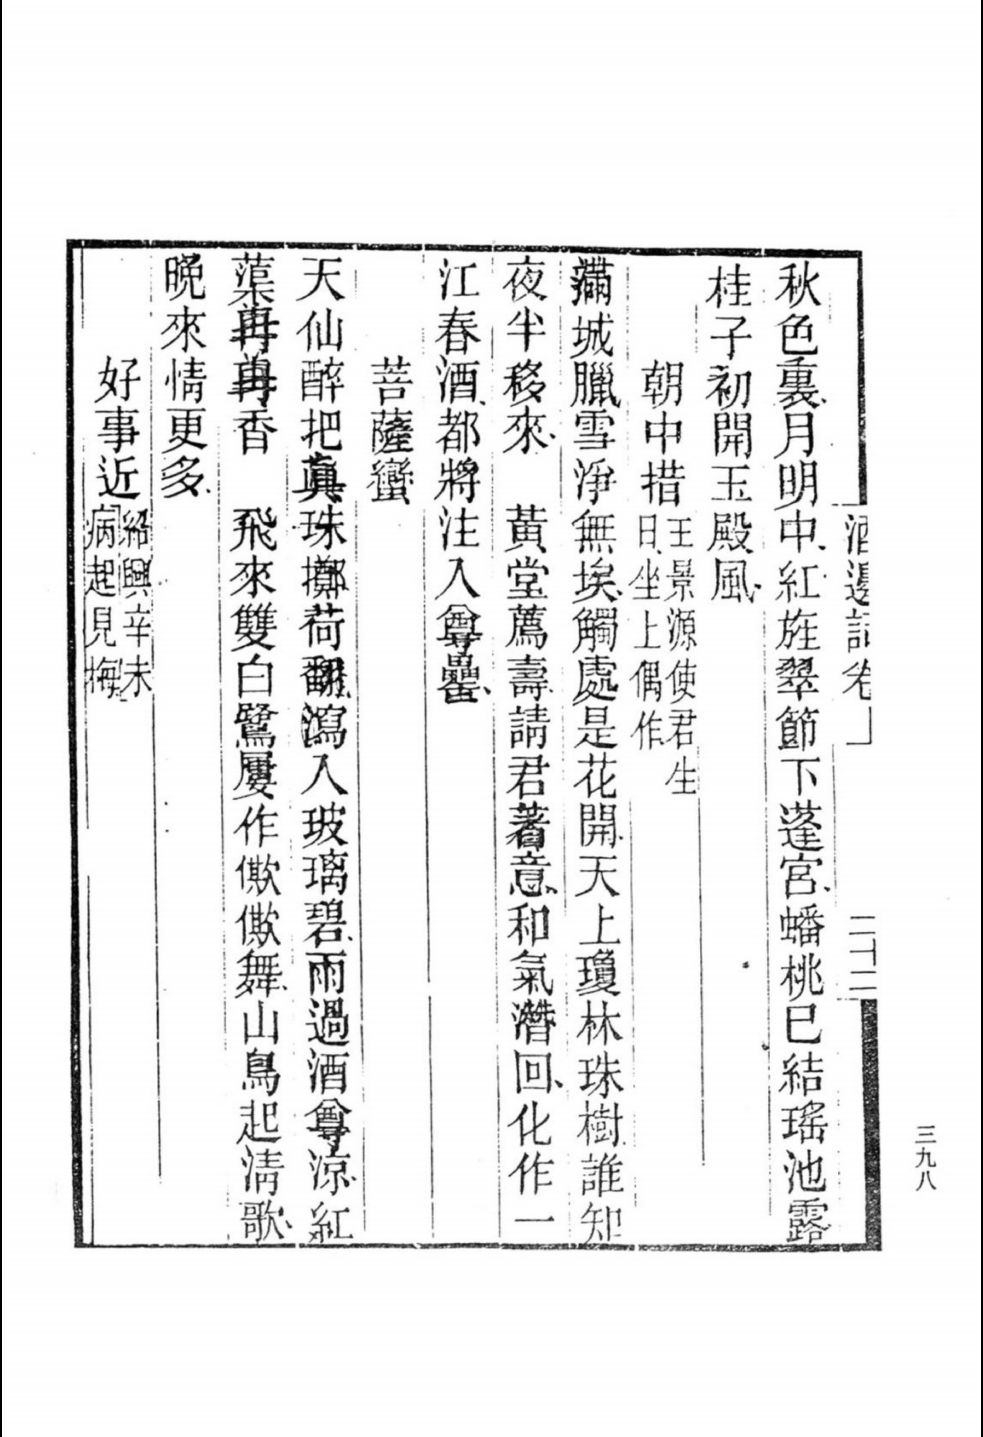 酒邊詞卷上
二十二
秋色裏月明中紅旌翠節下蓬宮蟠桃已結瑤池露
桂子初開玉殿風
朝中措 王景源使君生日坐上偶作
滿城臘雪淨無埃觸處是花開天上瓊林珠樹誰知
夜半移來　黃堂薦壽請君著意和氣潛回化作一
江春酒都將注入尊罍
菩薩蠻
天仙醉把眞珠擲荷翻瀉入玻璃碧雨過酒尊涼紅
蕖冉冉香　飛來雙白鷺屢作僛僛舞山鳥起清歌
晚來情更多
好事近 紹興辛未病起見梅
三九八